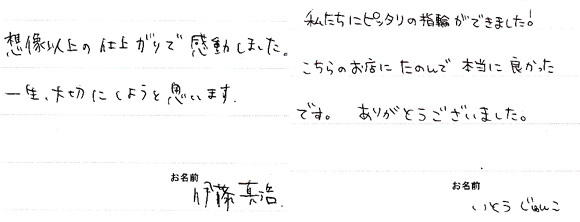 想像以上の仕上がりで感動しました。
一生、大切にしようと思います.
お名前
伊藤真浩.
私たちにピッタリの指輪ができました!
こちらのお店にたのんで本当に良かった
です。ありがとうございました。
お名前
いとうじゅんこ